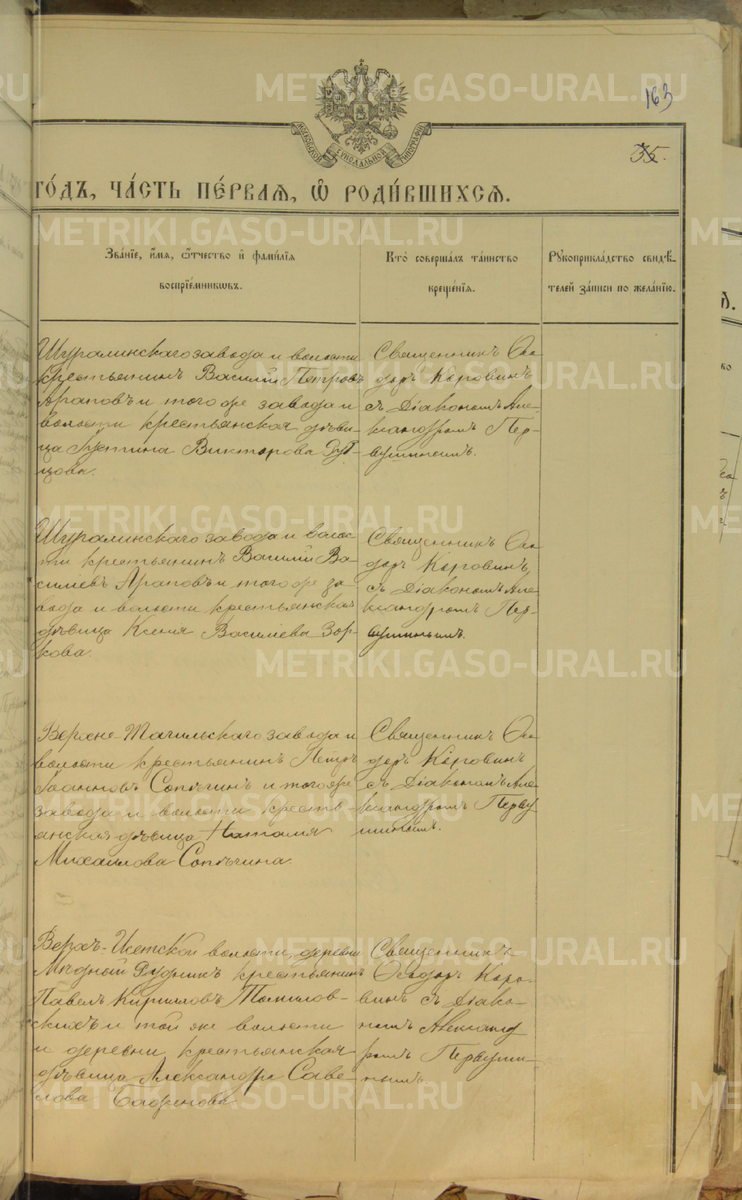 METRIKI.GASO-URAL.RU
163
35.
МОСКОВСКОЙ СѴНОДАЛЬНОЙ ТИПОГРАФІИ
ГО́ДЪ, ЧА́СТЬ ПЕ́РВАЯ, Ѽ РОДИ́ВШИХСЯ.
METRIKI.GASO-URAL.RU
Зва́нїе, и҆́мя, ѻ҆́тчество и҆ фами́лїя
воспрїе́мниковъ.
Кто̀ соверша́лъ та́инство
креще́нїя.
Рꙋкоприкла́дство свидѣ́-
телей за́писи по жела́нїю.
Шуралинскаго завода и волости
крестьянинъ Василій Петровъ
Араповъ и того же завода и
волости крестьянская дѣви-
ца Устина Викторова Руб-
цова.
Священникъ Ѳео-
доръ Коровинъ
съ Діакономъ Але-
ксандромъ Пер-
вушинымъ.
METRIKI.GASO-URAL.RU
Шуралинскаго завода и волос-
ти крестьянинъ Василій Ва-
силіевъ Араповъ и того же за-
вода и волости крестьянская
дѣвица Ксенія Василіева Зор-
кова.
Священникъ Ѳео-
доръ Коровинъ
съ Діакономъ Але-
ксандромъ Пер-
вушинымъ.
METRIKI.GASO-URAL.RU
Верхне-Тагильскаго завода и
волости крестьянинъ Петръ
Іоанновъ Сопѣгинъ и того же
завода и волости кресть-
янская дѣвица Наталія
Михаилова Сопѣгина.
Священникъ Ѳео-
доръ Коровинъ
съ Діакономъ Але-
ксандромъ Перву
шинымъ.
METRIKI.GASO-URAL.RU
Верхъ-Исетской волости, деревни
Мѣдный Рудникъ крестьянинъ
Павелъ Кириловъ Томилов-
скихъ и той же волости
и деревни крестьянская
дѣвица Александра Саве-
лова Баженова.
Священникъ
Ѳеодоръ Коро-
винъ съ Діако-
номъ Александ
ромъ Первуши-
нымъ.
METRIKI.GASO-URAL.RU
METRIKI.GASO-URAL.RU